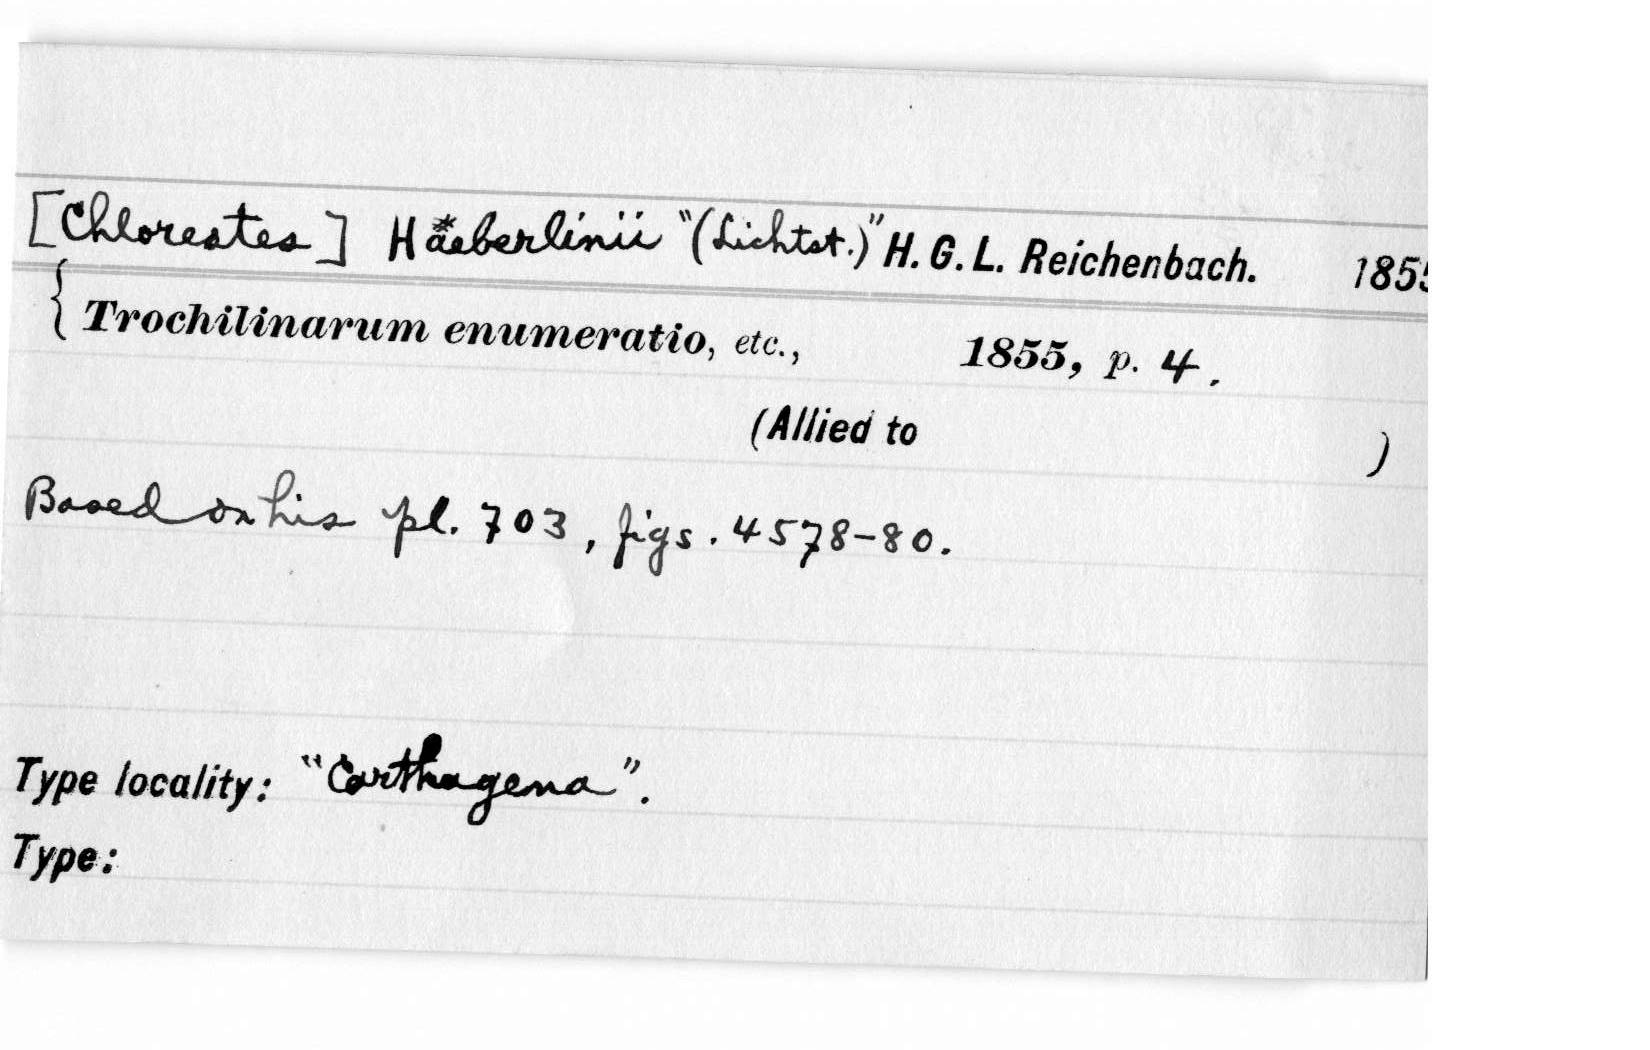 [Chlorestes] Haeberlinii "(Lichtst.)" H. G. L. Reichenbach. 1855
{ Trochilinarum enumeratio, etc., 1855, p. 4.
(Allied to )
Based on his pl. 703, figs. 4578-80.
Type locality: "Carthagena".
Type: